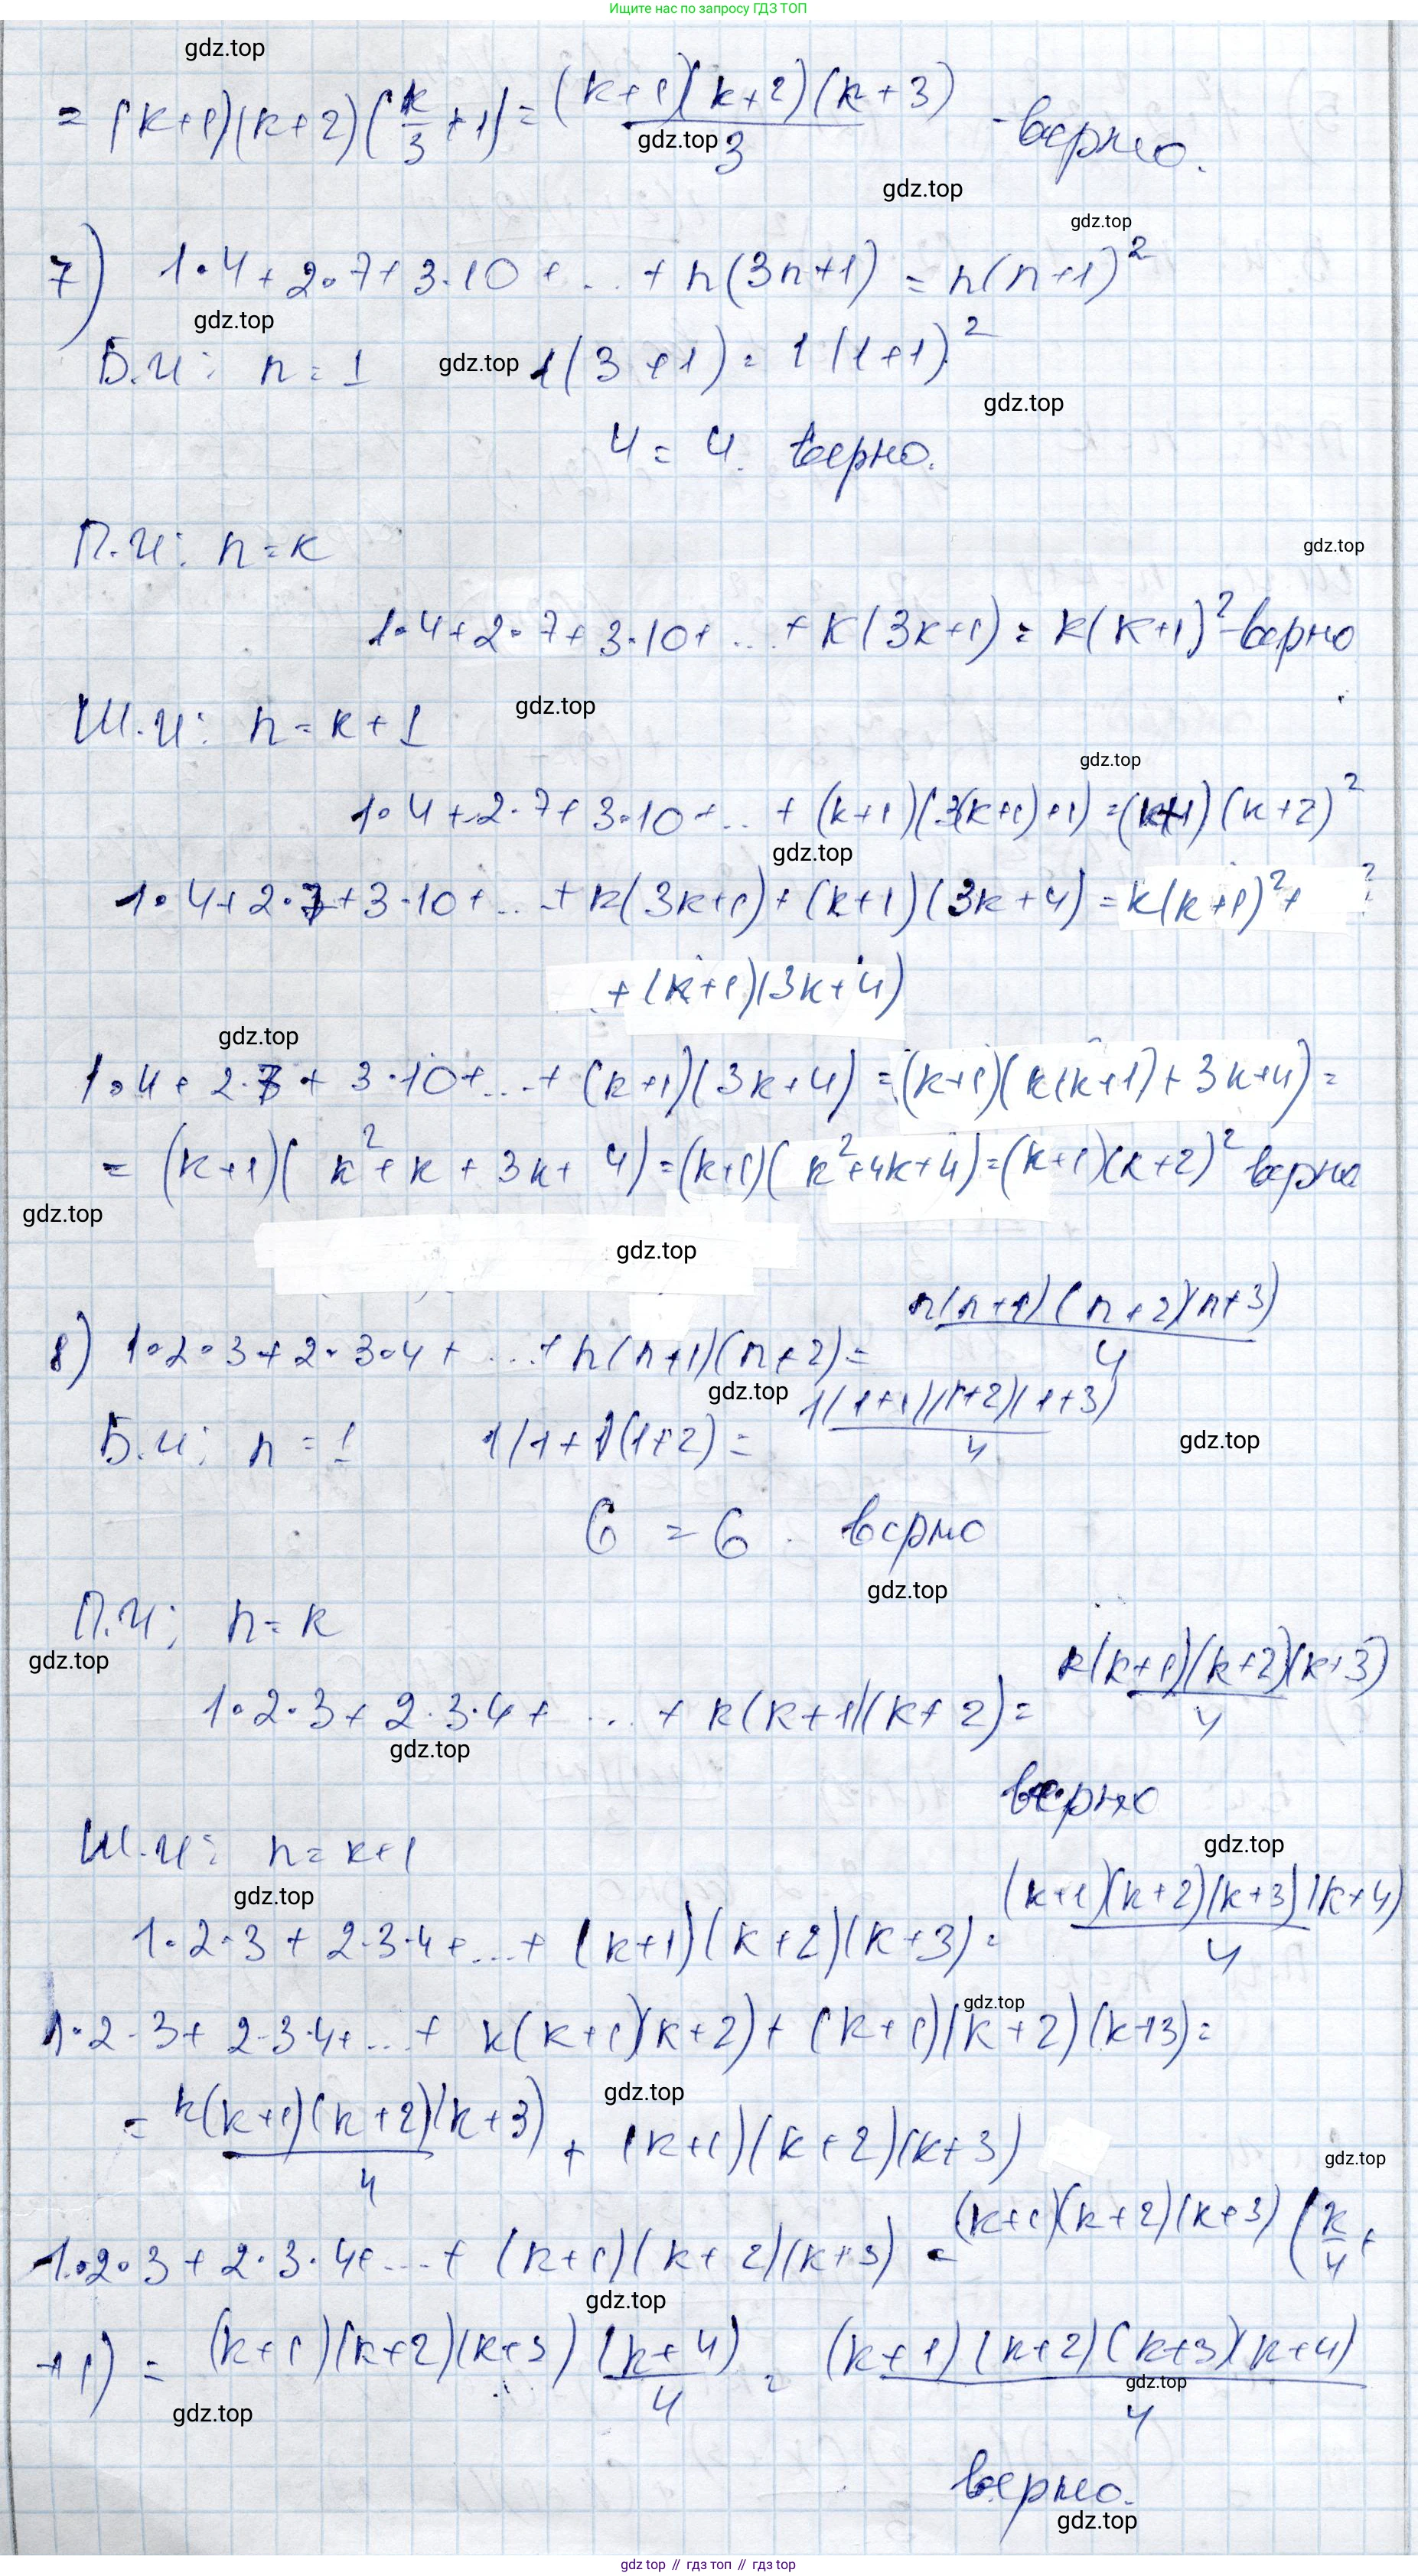 Ищите нас по запросу ГДЗ ТОП
gdz.top
= (k+1)(k+2)(k/3+1) = (k+1)(k+2)(k+3)/3 - верно.
gdz.top
gdz.top
gdz.top
7) 1·4+2·7+3·10+...+n(3n+1) = n(n+1)²
gdz.top
Б.И: n=1 gdz.top 1(3+1) = 1(1+1)²
gdz.top
4 = 4. верно.
П.И: n=k
gdz.top
1·4+2·7+3·10+...+k(3k+1) = k(k+1)² - верно
Ш.И: n=k+1 gdz.top
gdz.top
1·4+2·7+3·10+...+(k+1)(3(k+1)+1) = (k+1)(k+2)²
gdz.top
1·4+2·7+3·10+...+k(3k+1)+(k+1)(3k+4) = k(k+1)²+
+(k+1)(3k+4)
gdz.top
1·4+2·7+3·10+...+(k+1)(3k+4) = (k+1)(k(k+1)+3k+4) =
= (k+1)(k²+k+3k+4) = (k+1)(k²+4k+4) = (k+1)(k+2)² верно
gdz.top
gdz.top
8) 1·2·3+2·3·4+...+n(n+1)(n+2) = n(n+1)(n+2)(n+3)/4
gdz.top
Б.И: n=1 1(1+1)(1+2) = 1(1+1)(1+2)(1+3)/4
gdz.top
6 = 6. верно
gdz.top
П.И: n=k
gdz.top
1·2·3+2·3·4+...+k(k+1)(k+2) = k(k+1)(k+2)(k+3)/4
gdz.top
верно
gdz.top
Ш.И: n=k+1
gdz.top
1·2·3+2·3·4+...+(k+1)(k+2)(k+3) = (k+1)(k+2)(k+3)(k+4)/4
gdz.top
1·2·3+2·3·4+...+k(k+1)(k+2)+(k+1)(k+2)(k+3) =
gdz.top
= k(k+1)(k+2)(k+3)/4 + (k+1)(k+2)(k+3)
gdz.top
1·2·3+2·3·4+...+(k+1)(k+2)(k+3) = (k+1)(k+2)(k+3)(k/4+
gdz.top
+1) = (k+1)(k+2)(k+3)(k+4)/4 = (k+1)(k+2)(k+3)(k+4)/4
gdz.top
gdz.top
верно.
gdz.top
gdz top // гдз топ // gdz top